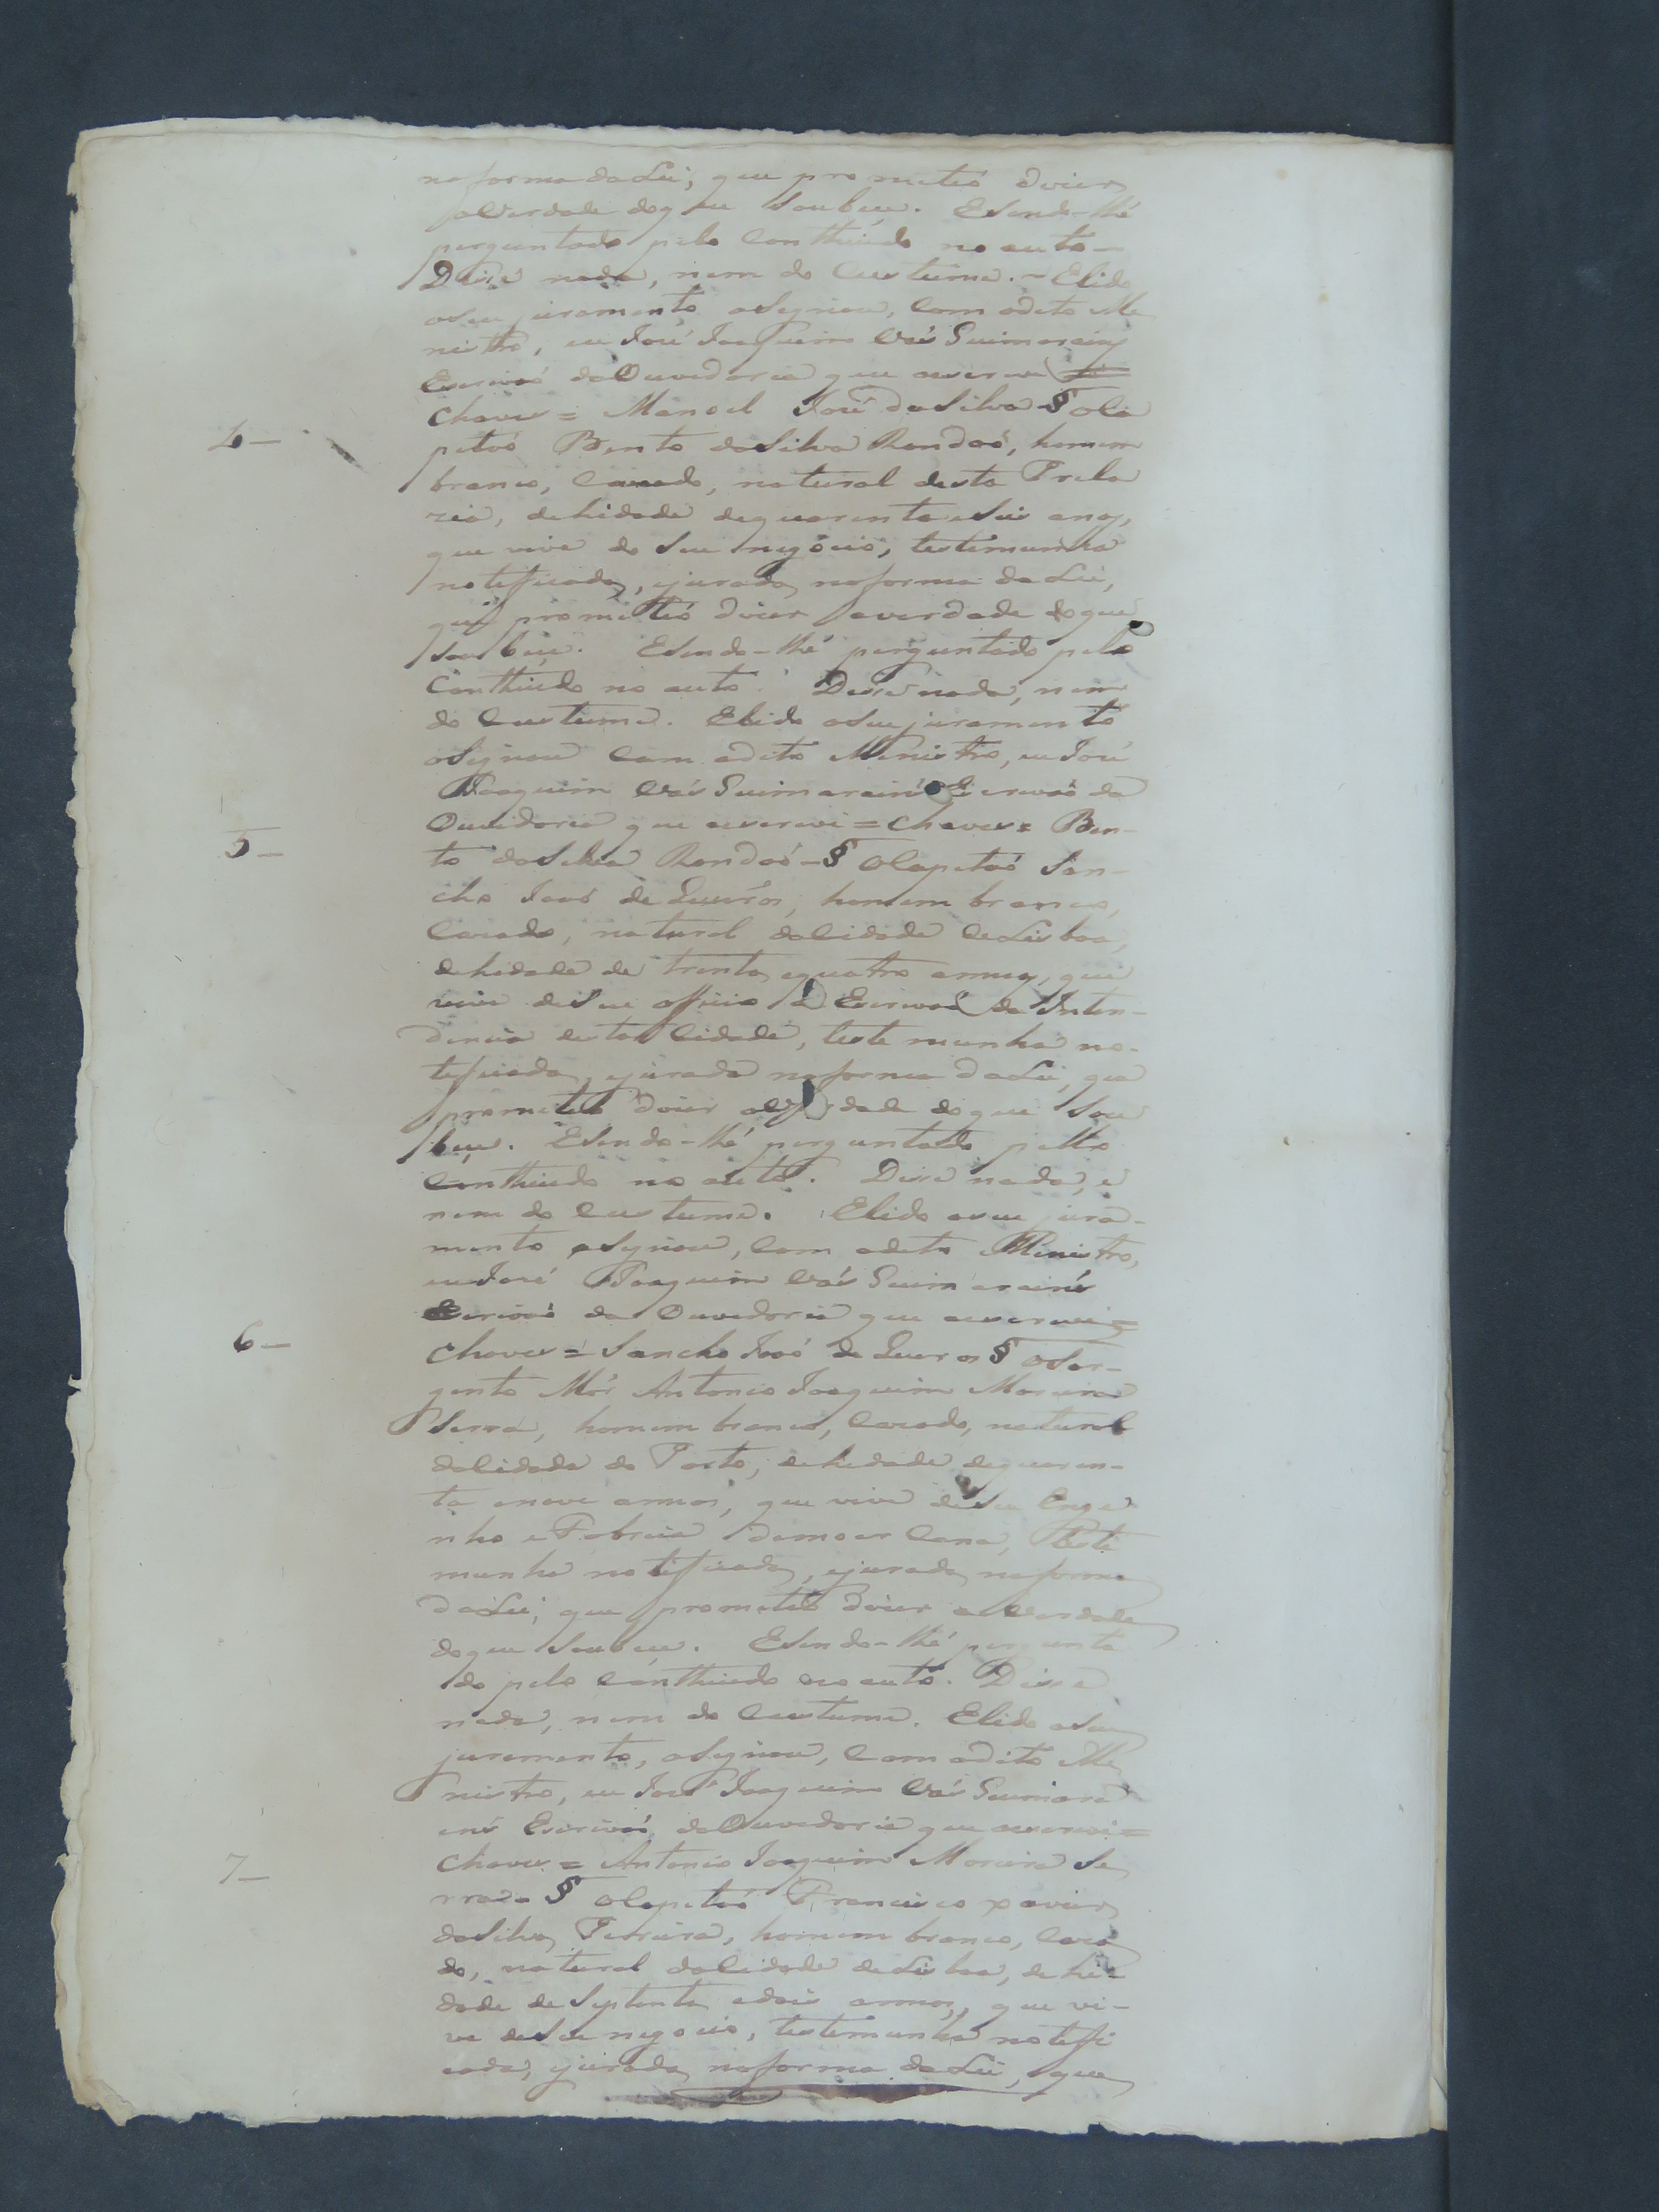 naforma daLei, que prometeó dizer
averdade doque Soubeçe. ESendo-lhé
perguntado pelo Conthiudo no auto-
Disse nada, nem do Custume. - Elido
oSeu juramento aSignou, Com odito Me
nistro, eu Jozé Joaquim Vás Guimaraiñs
Escrivaó daOuvidoria que oescrevi =
Chaves = Manoel Jozé daSilva § OCa
4-
pitaó Bento daSilva Rondaó, homem
branco, Cazado, natural desta Prela
zia, dehidade dequarenta eSeis anos,
que vive do Seu negócio, testemunha
notefficada, ejurada naforma da Lei,
que prometeó dizer averdade doque
Soubeçe. ESendo-lhé perguntado pelo
Conthiudo no auto. Disse nada, nem
do Custume. Elido oSeu juramento
aSignou Com odito Ministro, eu Jozé
Joaquim Vás Guimarains Escrivaó da
Ouvidoria que oescrevi = Chaves = Ben-
5-
to daSilva Rondaó - § OCapitaó San-
cho Joaó de Queirós, homem branco,
Cazado, natural daCidade deLisboa,
dehidade de trenta equatro annos, que
vive deSeu officio de Escrivaó da Inten-
dencia desta Cidade, testemunha no-
teficada, ejurada naforma daLei, que
prometeó dizer aVerdade doque Sou
beçe. ESendo-lhé perguntado pello
Conthiudo no auto. Disse nada, e
nem do Custume. Elido oseu jura-
mento aSignou, Com odito Ministro,
eu Jozé Joaquim Vás Guimarains
Escrivaó da Ouvidoria que oescrevi =
6-
Chaves = Sancho Joaó de Queiros § OSar-
gento Mór Antonio Joaquim Moreira
Serra, homem branco, Cazado, natural
daCidade do Porto, dehedade dequaren-
ta enove annos, que vive deSeu Enge
nho e Fabrica demoer Cana, Teste
munha notifficada, ejurada naforma
daLei, que prometeó dizer averdade
doque Soubeçe. ESendo-lhé pergunta
do pelo Conthiudo noauto. Disse
nada, nem do Custume. Elido oSeu
juramento, aSignou, Com odito Me
nistro, eu Jozé Joaquim Vás Guimara
ens Escrivaó daOuvidoria que oescrevi =
7-
Chaves = Antonio Joaquim Moreira Se
rra - § OCapitaó Francisco Xavier
daSilva Pereira, homem branco, Caza
do, natural daCidade deLisboa, dehi-
dade de Septenta edois annos, que vi-
ve deSeu negocio, testemunha notefi
cada, ejurada naforma daLei, que